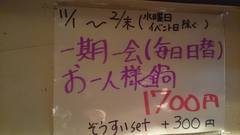 11/1〜2/末(水曜日
イベント日除く)
一期一会(毎日日替)
お一人様鍋
1700円
ぞうすいset +300円